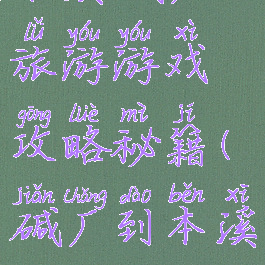 lǚ yóu yóu xì
旅游游戏
gōng lüè mì jí
攻略秘籍(
jiǎn chǎng dào běn xī
碱厂到本溪